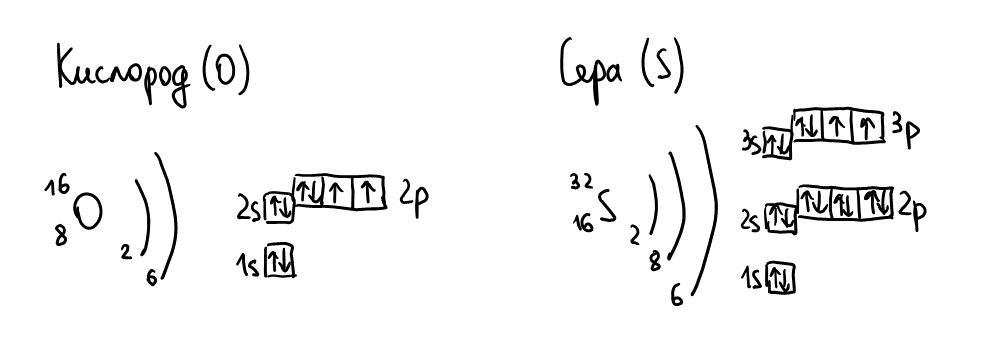 Кислород (O)
16
8 O 2 6
2s 2p
1s
Сера (S)
32
16 S 2 8 6
3s 3p
2s 2p
1s